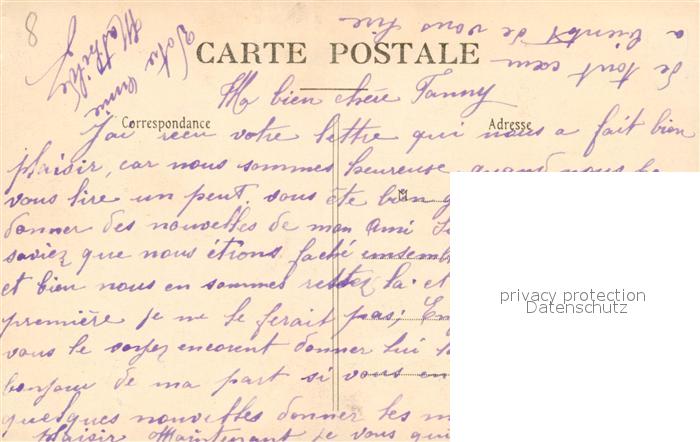 8
a bientot de vous lire
de tout cœur
Votre Amie
Mathilde
CARTE POSTALE
Ma bien chère Fanny
Correspondance
Adresse
J'ai recu votre lettre qui nous a fait bien
plaisir, car nous sommes heureuse quand nous
vous lire un peut. vous ête bien
donner des nouvelles de mon Ami
saviez que nous étions faché ensemb
et bien nous en sommes restez la. et
première je ne le ferait pas;
vous le voyez encorent donner lui
bonjour de ma part si vous en
quelques nouvelles donner les m
plaisir Maintenant je vous qui
privacy protection
Datenschutz